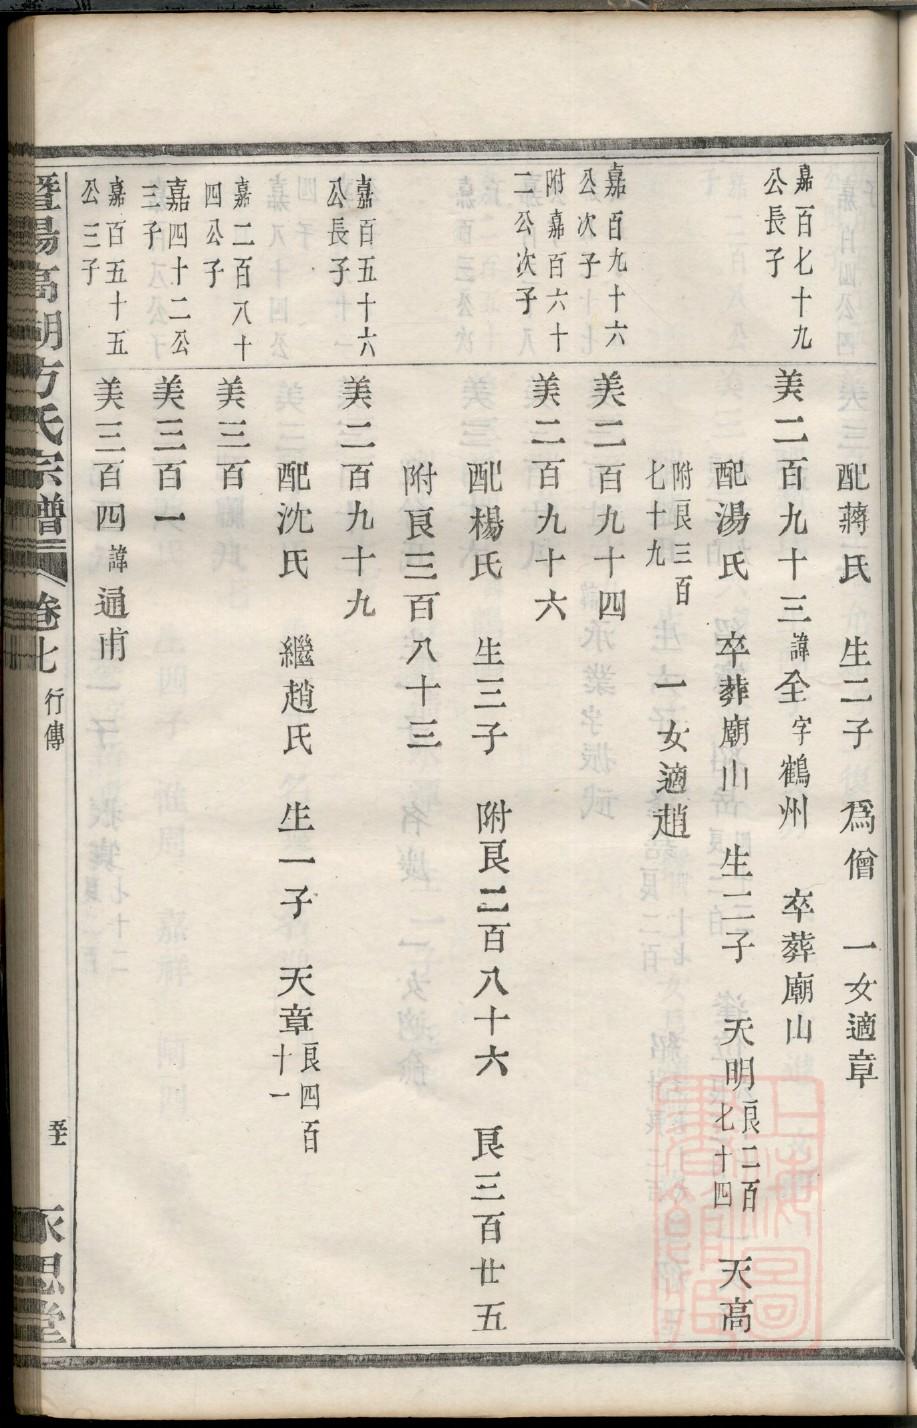 配蔣氏　生二子　爲僧　一女適章
嘉百七十九
公長子
美二百九十三諱全字鶴州　卒葬廟山
配湯氏　卒葬廟山　生二子　天明良二百七十四　天高
附良三百七十九　一女適趙
嘉百九十六
公次子
美二百九十四
附嘉百六十
二公次子
美二百九十六
配楊氏　生三子　附良二百八十六　良三百廿五
附良三百八十三
嘉百五十六
公長子
美二百九十九
配沈氏　繼趙氏　生一子　天章良四百十一
嘉二百八十
四公子
美三百
嘉四十二公
三子
美三百一
嘉百五十五
公三子
美三百四諱通甫
暨陽高湖方氏宗譜　卷七　行傳　永思堂